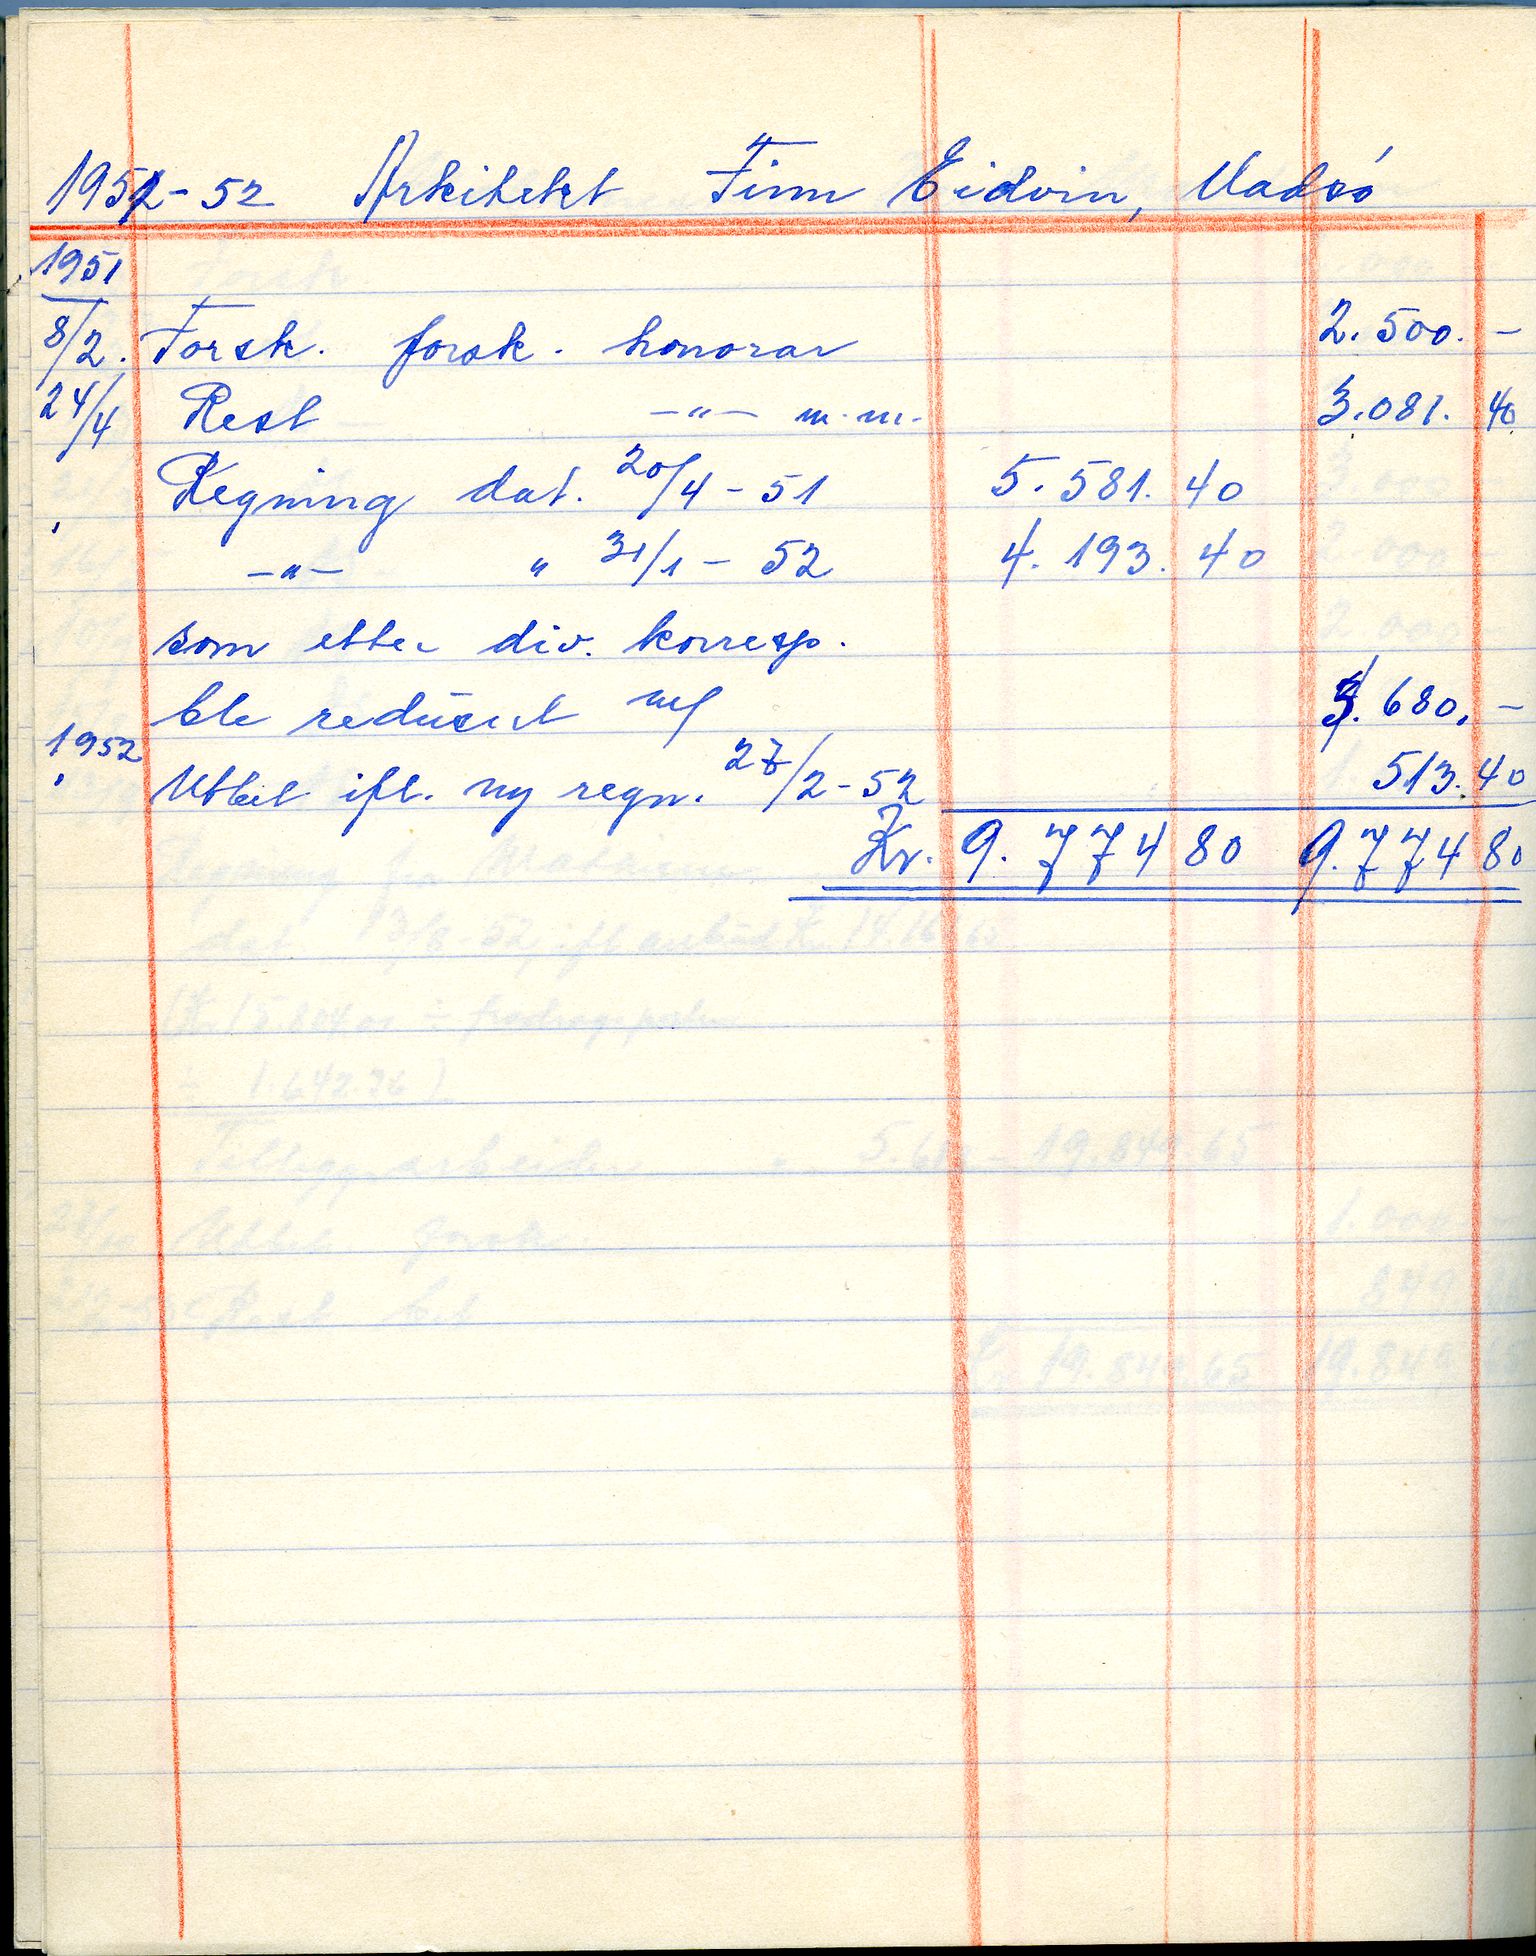 1951-52 Arkitekt Finn Eidvin, Vadsö
1951
8/2. Forsk. forsk. honorar 2.500.-
24/4 Rest -"- m.m. 3.081.40
Regning dat. 20/4-51 5.581.40
-"- " 31/1-52 4.193.40
som etter div. korresp.
ble redusert m/ 3.680.-
1952
Utbet. ifl. ny regn. 27/2-52 513.40
Kr. 9.774 80 9.774 80